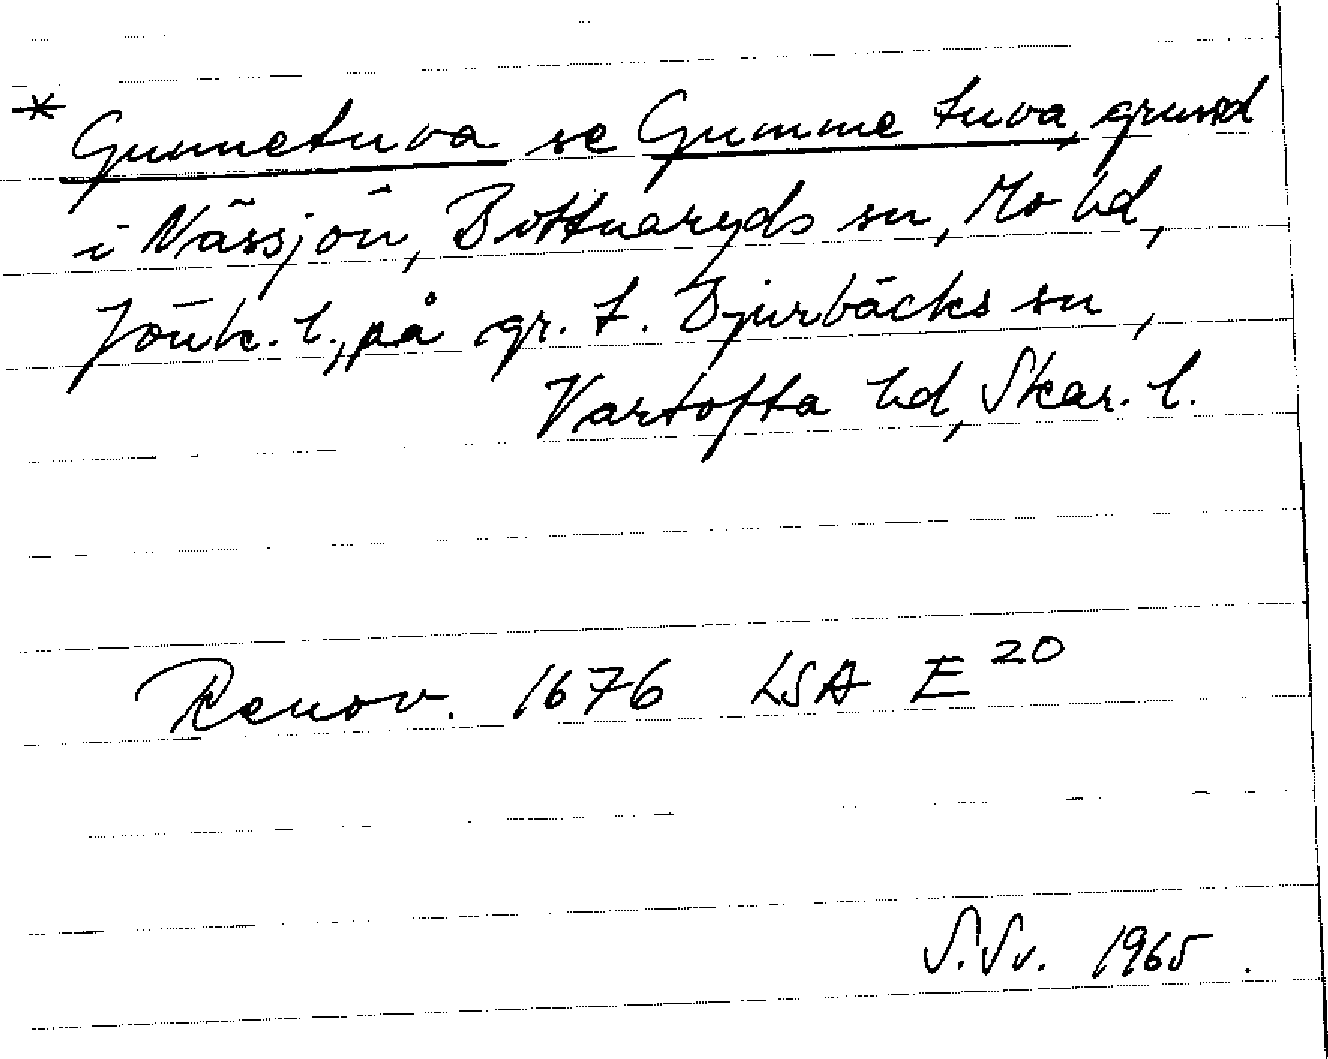 * Gunnetuva se Gumme tuva, grund
i Nässjön, Bottnaryds sn, Mo hd,
Jönk. l., på gr. t. Bjurbäcks sn,
Vartofta hd, Skar. l.
Renov. 1676 LSA E 20
S. Sv. 1965.